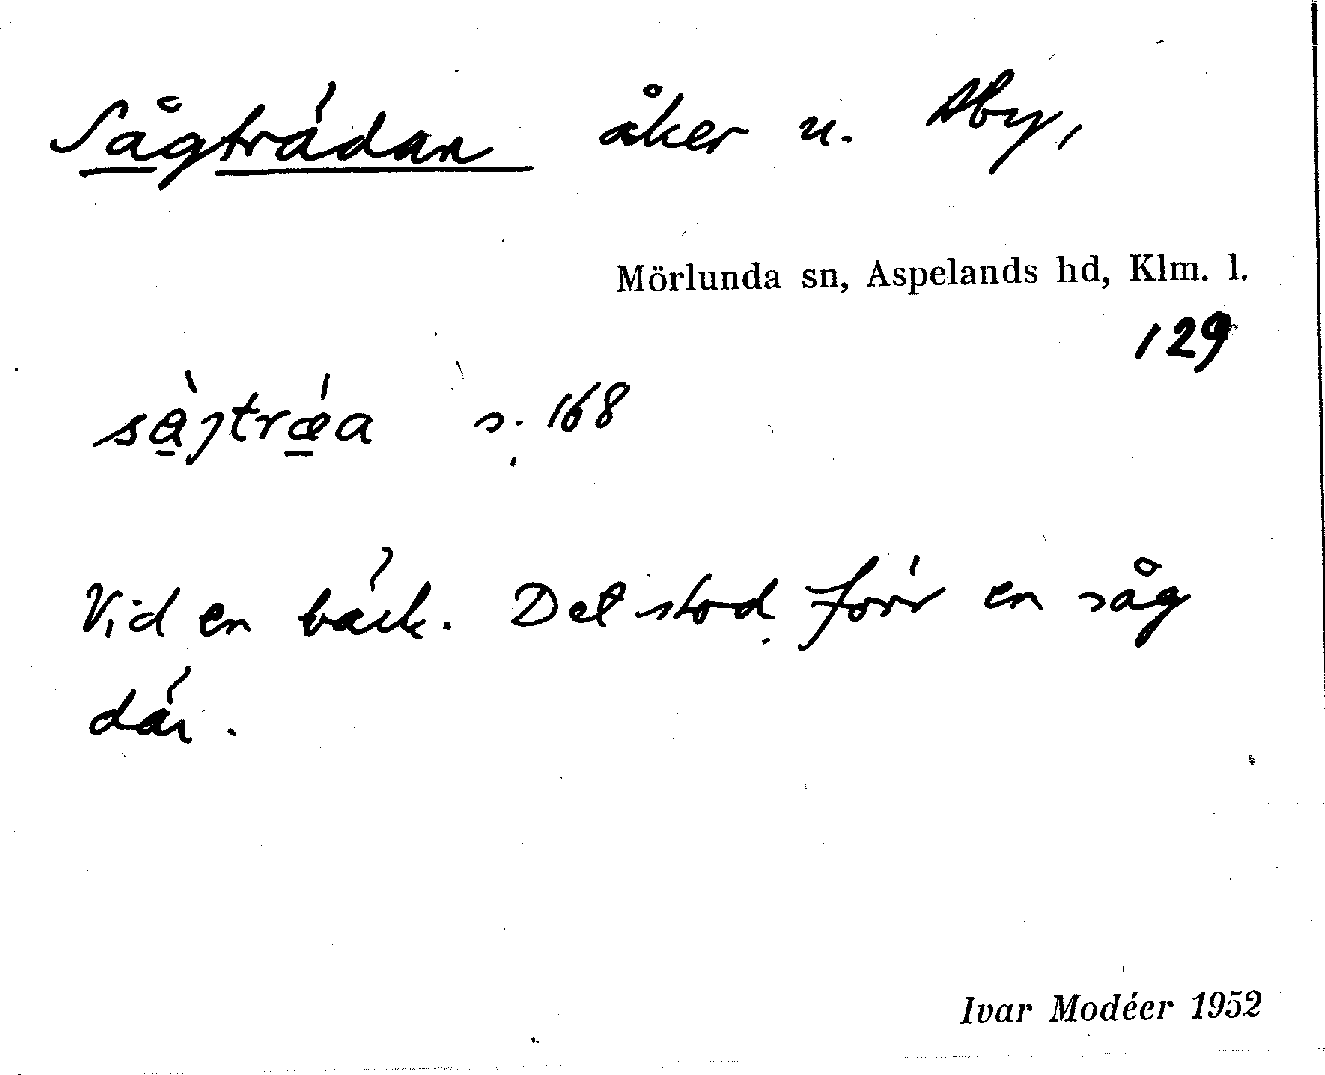 Sågträdan åker u. Åby,
Mörlunda sn, Aspelands hd, Klm. l.
129
sàjtrǽa s. 168
Vid en bäck. Det stod förr en såg
där.
Ivar Modéer 1952